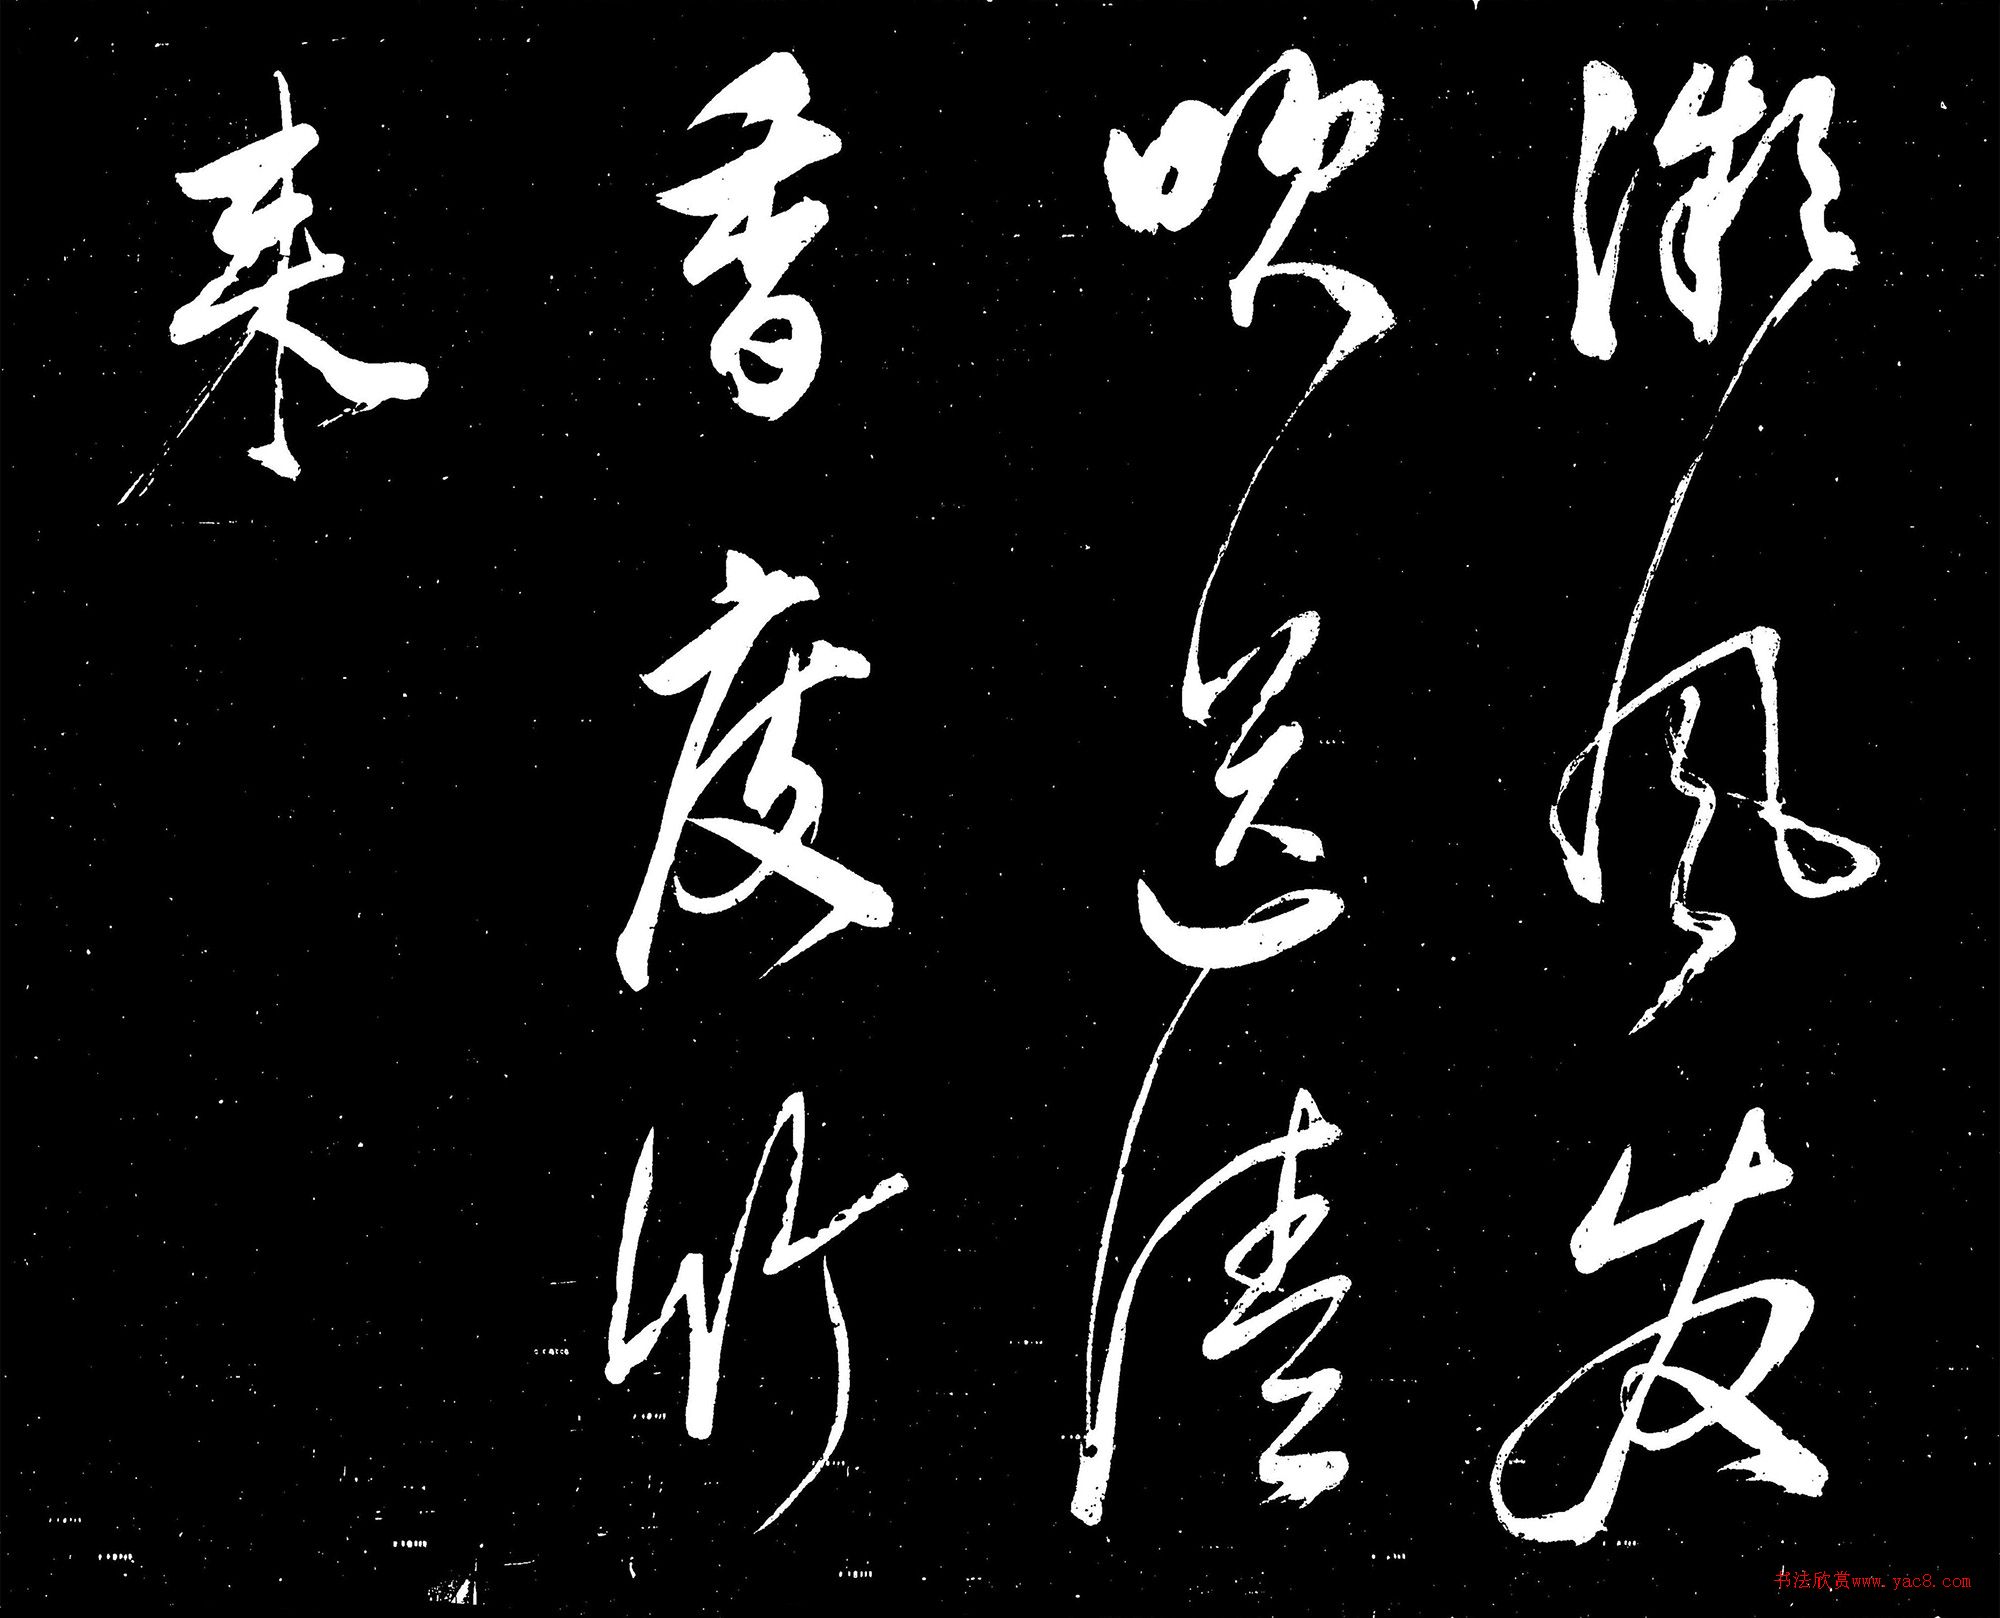 微風發
吹送清
香度竹
来
书法欣赏www.yac8.com